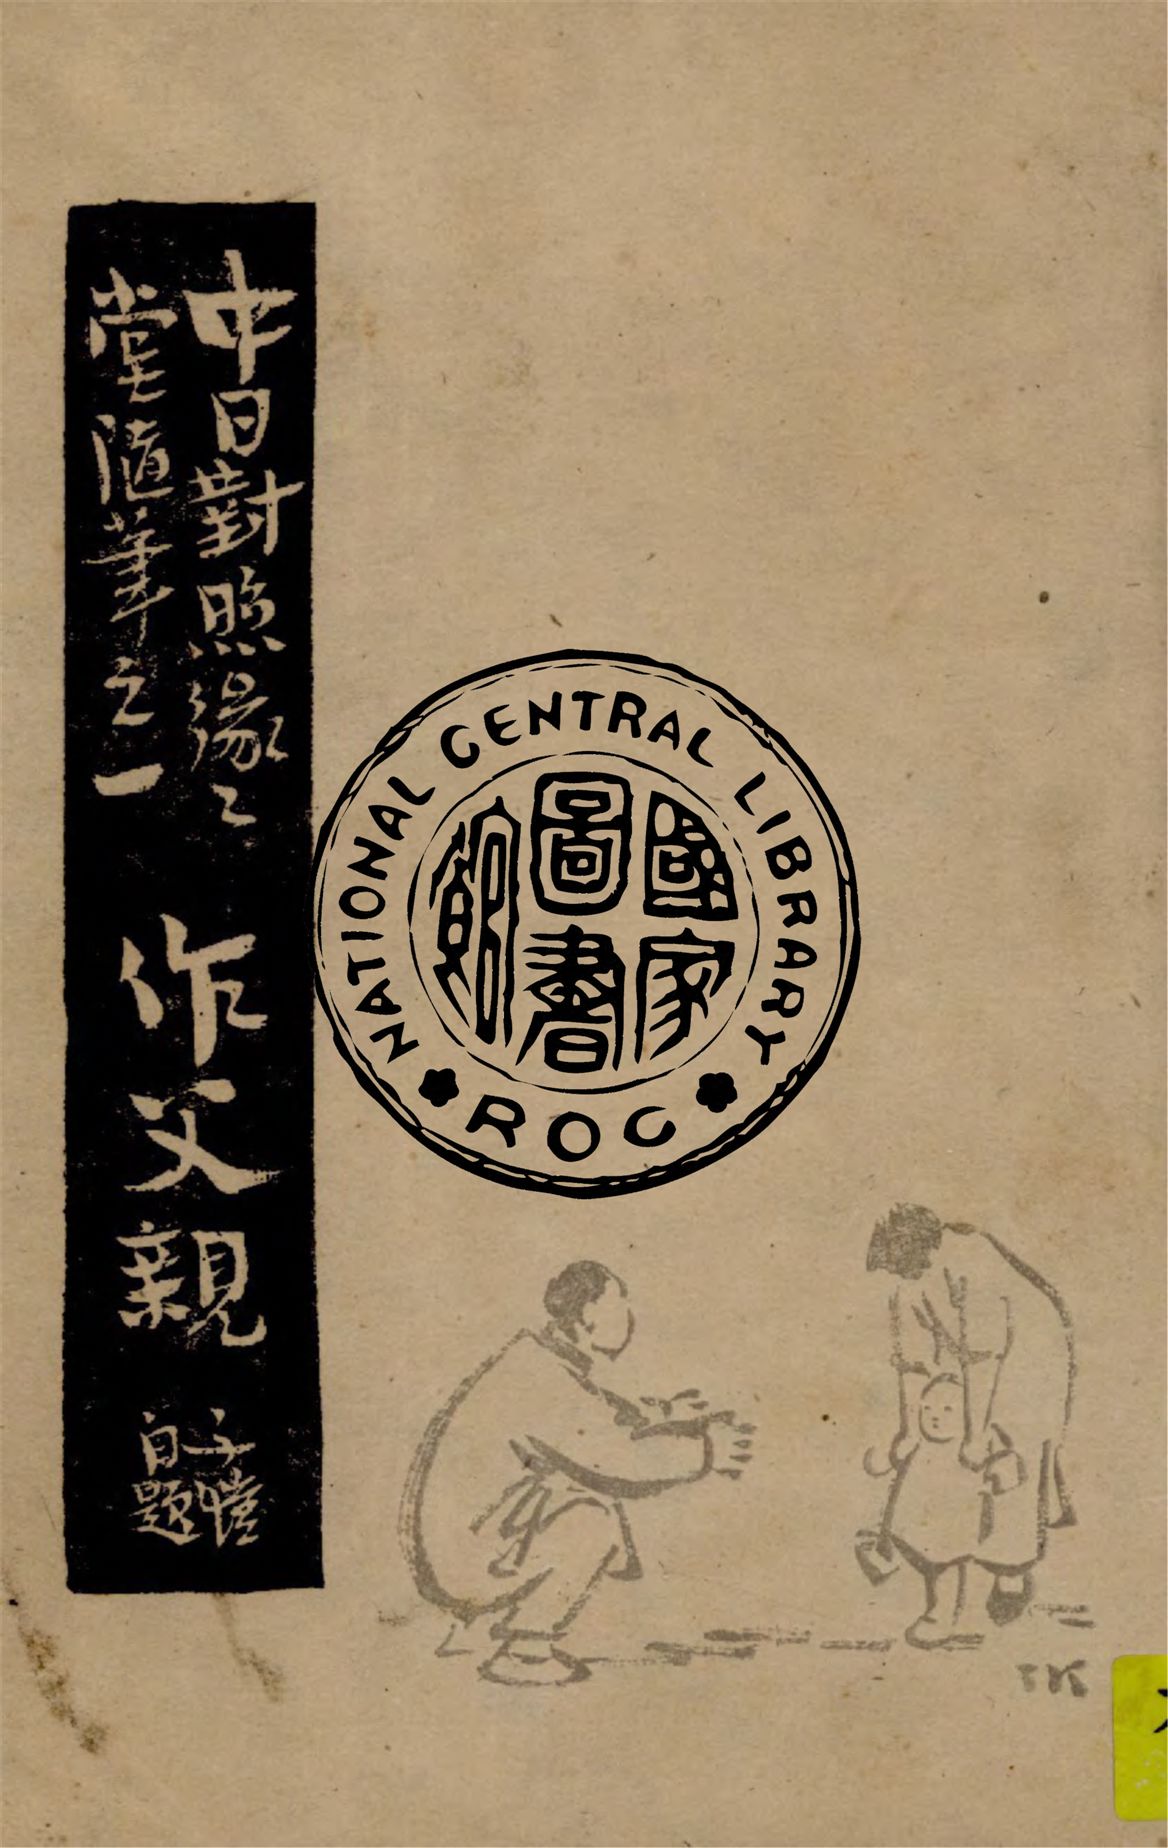 中日對照緣々
堂隨筆之一
作父親
子愷
自題
NATIONAL CENTRAL LIBRARY
國家
圖書
館
ROC
TK